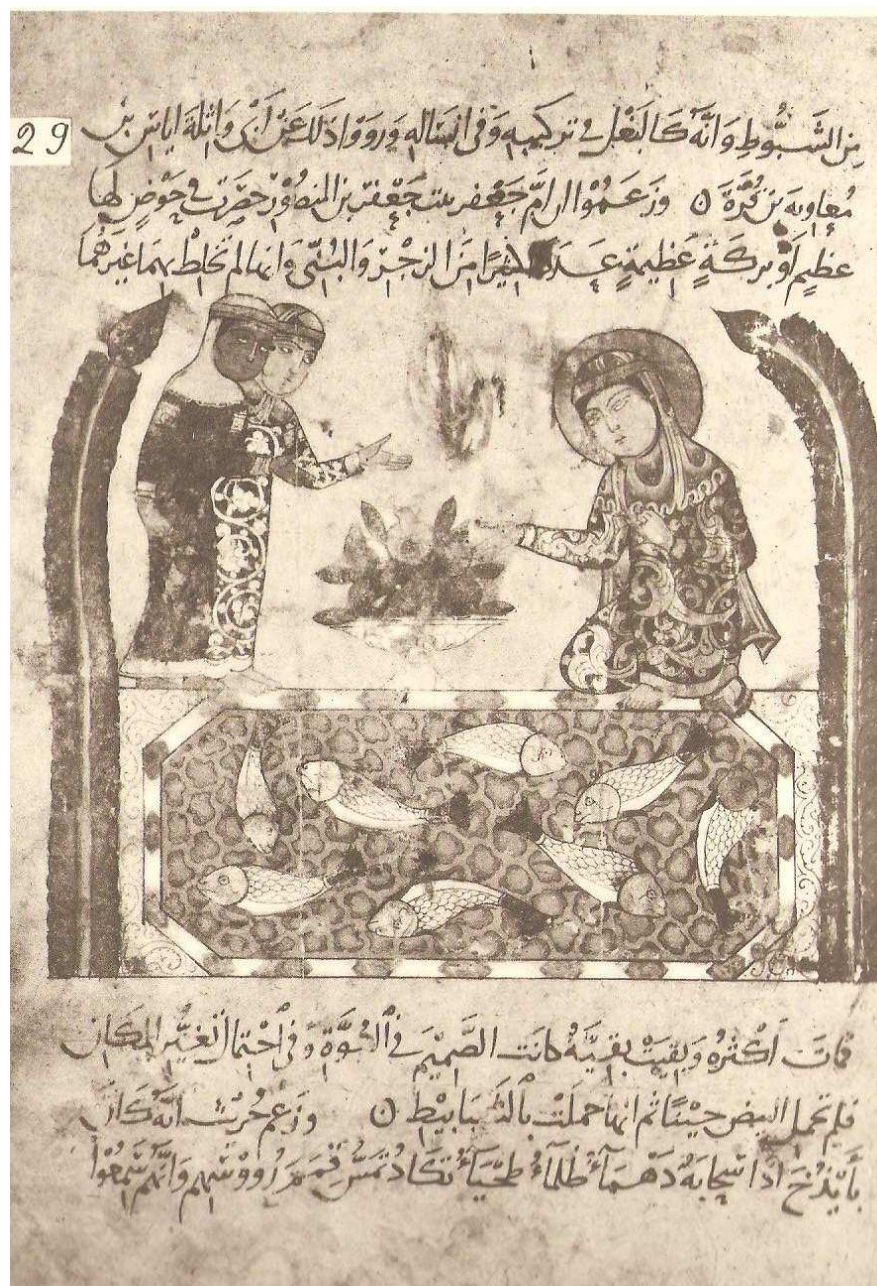 29
مِن الشَّبُّوطِ وَانَّهُ كَالبَغْل في تركيبه وَفي انساله وَرووا ذلكَ عَنْ ابى وَاثلة اياس بن
مُعاويه بن قُرَّة ن وزعموا ان امَّ جعْفر بنت جَعْفر بن المنصُور حصَرت في حَوضٍ لها
عظيمٍ اَو بركةٍ عَظيمةٍ عدَدًا كثيرًا منَ الزجْر وَالبُنّي وَانها لم تخلط بهما غيرهُما
فماتَ اكْثرُهُ وَبقيَتْ بقيَّةٌ كانَت الصَّميمَ في القُوَّة وَفي احْتمال تَغيُّر المكَان
فلم تحمل البيض حيْنًا ثم انها حمَلَتْ بالشَّبَابيْط ن وزعم حُريْث انه كَان
بأيْذَجَ اذا سَحابَةٌ دَهْمَآءُ طَخْيَآءُ تكَادُ تمَسُّ قممَ رُووسهِم وَانهُم سَمعُوا